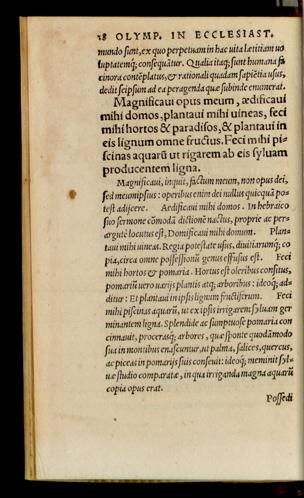 28 OLYMP. IN ECCLESIAST.
mundo sunt, ex quo perpetuam in hac uita lætitiam uo
luptatemq́; consequãtur. Qualia itaq; sunt humana fa
cinora contẽplatus, & rationali quadam sapiẽtia usus,
dedit seipsum ad ea peragenda quæ subinde enumerat.
Magnificaui opus meum, ædificaui
mihi domos, plantaui mihi uineas, feci
mihi hortos & paradisos, & plantaui in
eis lignum omne fructus. Feci mihi pi-
scinas aquarũ ut rigarem ab eis syluam
producentem ligna.
Magnificaui, inquit, factum meum, non opus dei,
sed meumipsius: operibus enim dei nullus quicquã po-
test adijcere. Aedificaui mihi domos. In hebraico
suo sermone cõmodã dictionẽ nactus, proprie ac per-
argutè locutus est, Domificaui mihi domum. Plan-
taui mihi uineas. Regia potestate usus, diuitiarumq́; co
pia, circa omne possessionũ genus effusus est. Feci
mihi hortos & pomaria. Hortus est oleribus consitus,
pomariũ uero uarijs plantis atq; arboribus: ideoq́; ad-
ditur: Et plantaui in ipsis lignum fructiferum. Feci
mihi piscinas aquarũ, ut ex ipsis irrigarem syluam ger
minantem ligna. Splendide ac sumptuose pomaria con
cinnauit, procerasq́; arbores, quæ sponte quodãmodo
sua in montibus enascuntur, ut palmæ, salices, quercus,
ac piceas in pomarijs suis conseuit: ideoq́; meminit syl-
uæ studio comparatæ, in qua irriganda magna aquarũ
copia opus erat.
Possedi